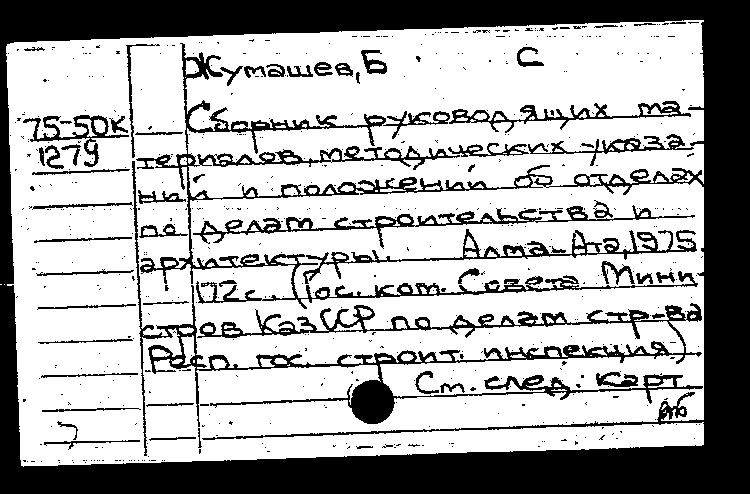 Жумашев, Б С
75-50к Сборник руководящих ма-
1279 териалов, методических указа-
ний и положений об отделах
по делам строительства и
архитектуры. Алма-Ата, 1975.
172с. (Гос. ком. Совета Мини-
стров КазССР по делам стр-ва
Респ. гос. строит. инспекция).
См. след. карт.